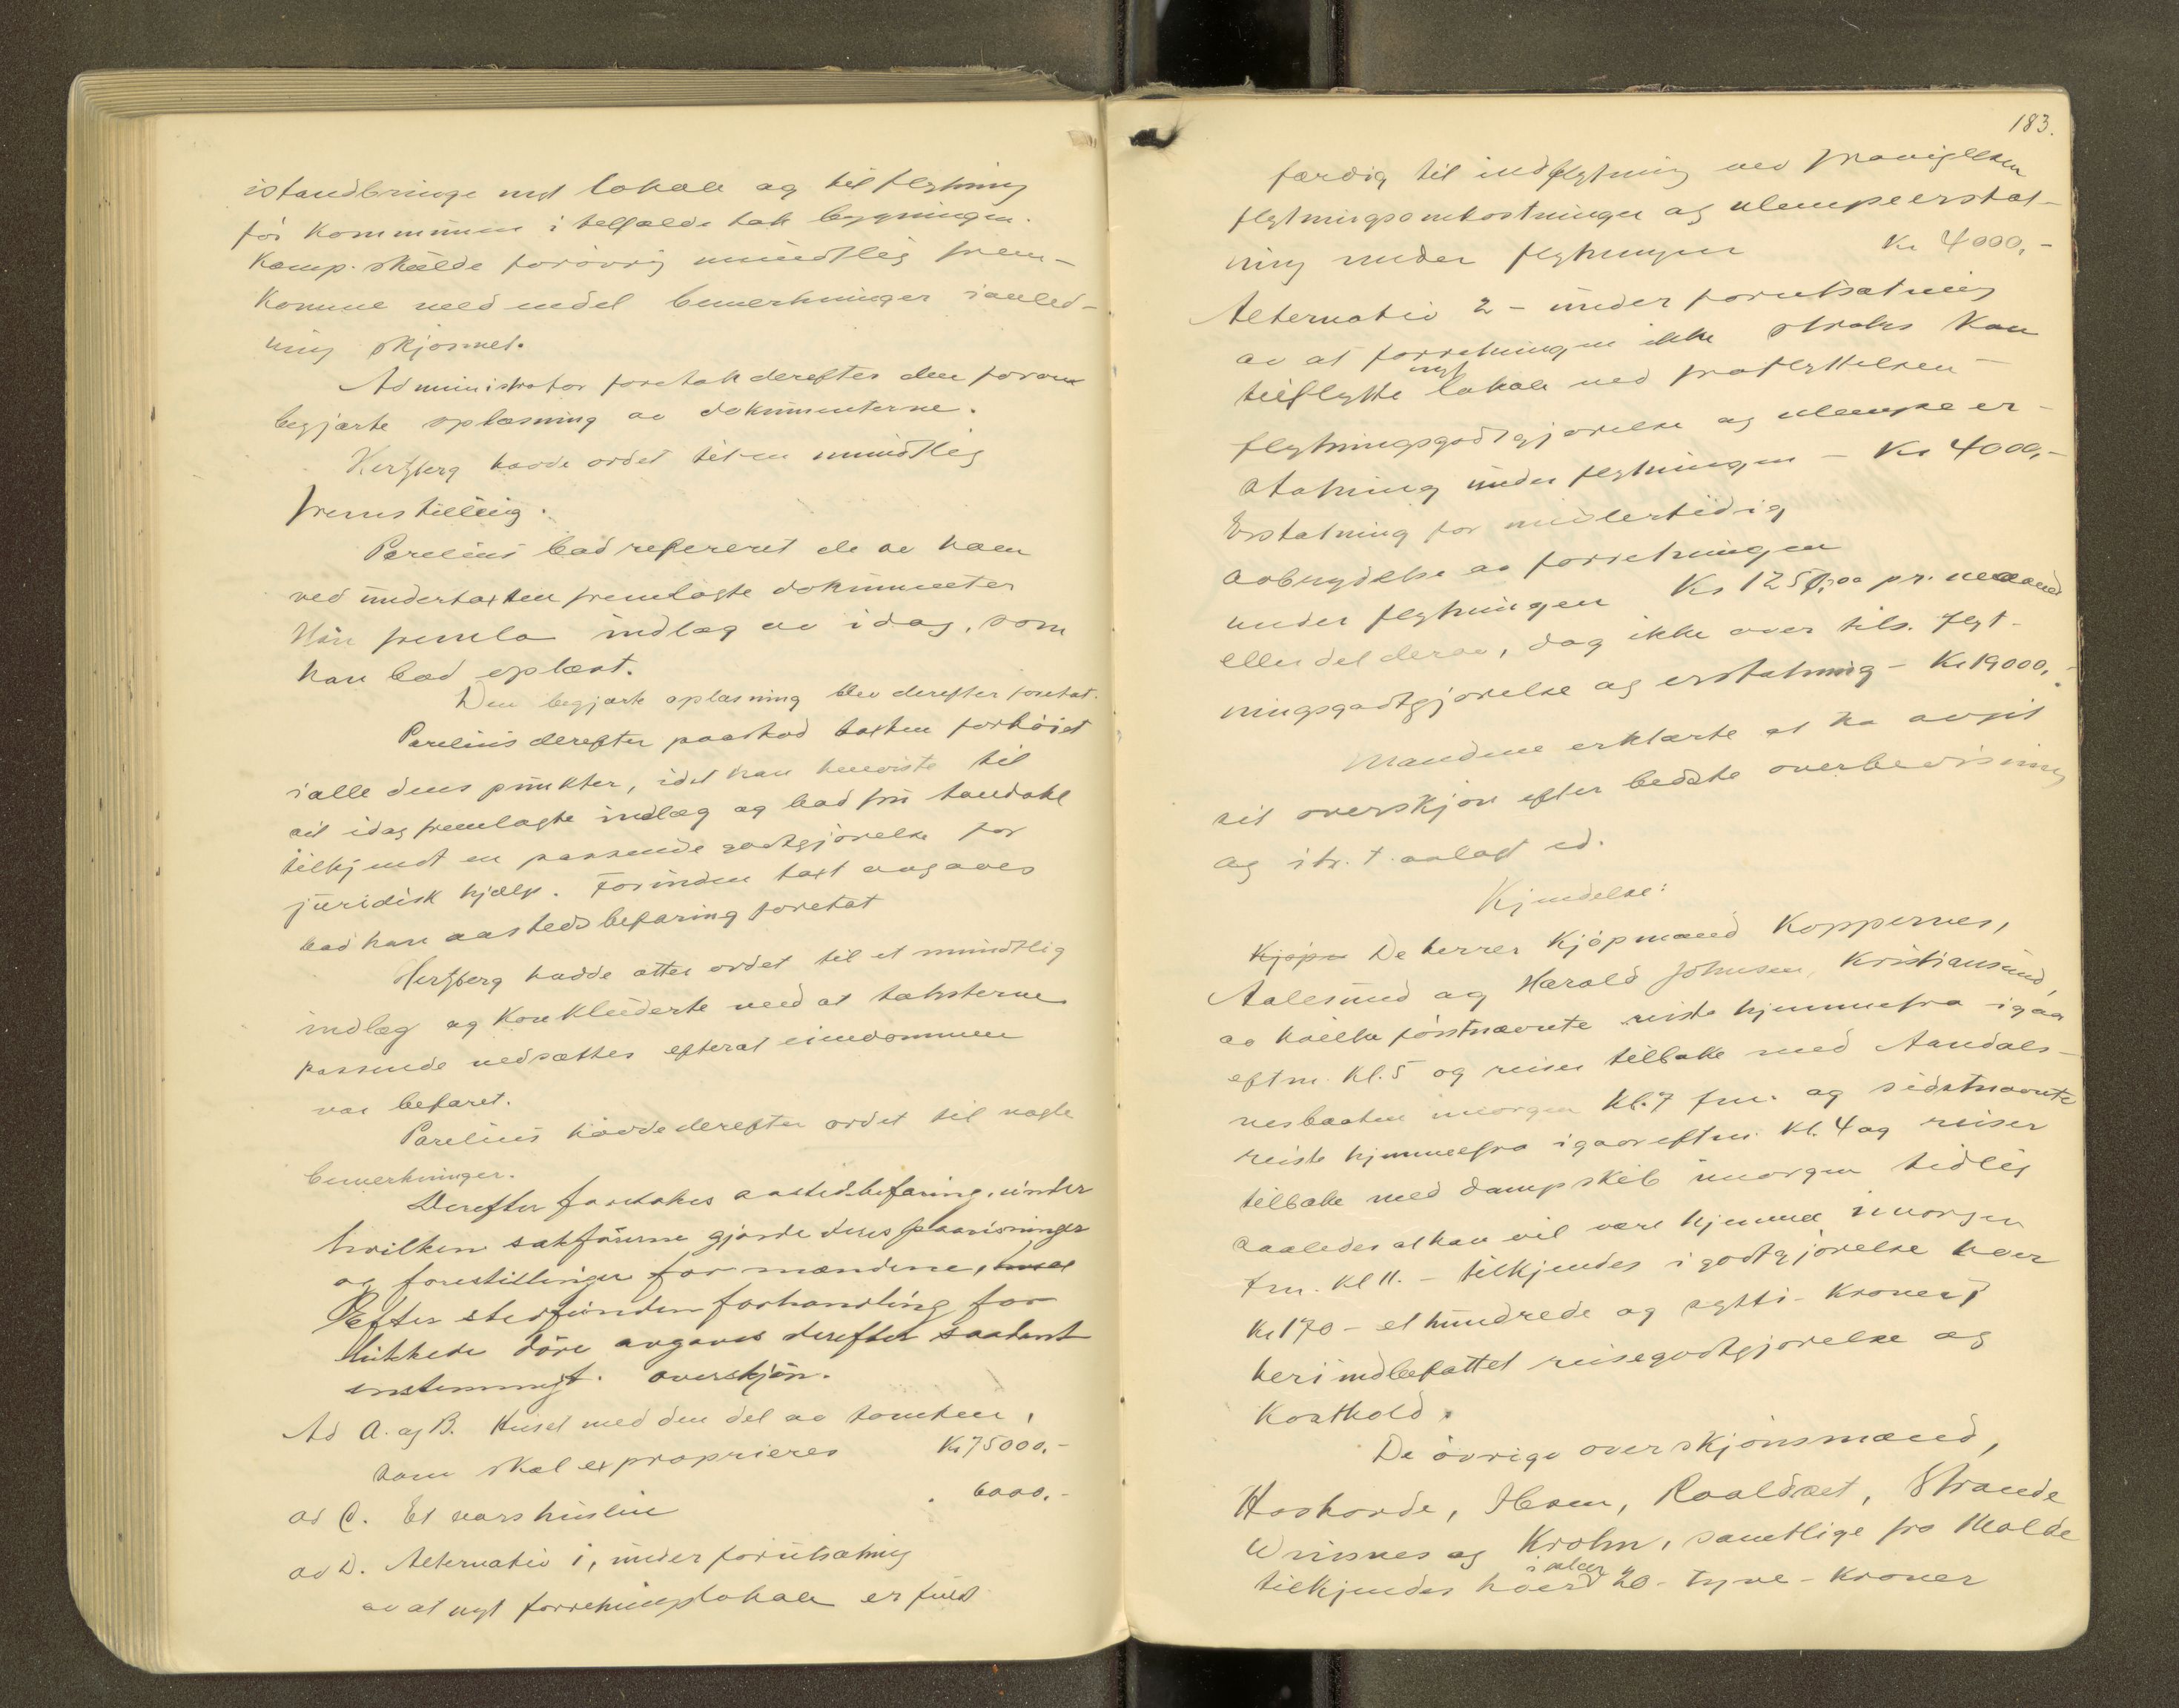 istandbringe nyt lokale og til flytning
før kommunen i tilfælde tok bygningen.
Komp. skulde forøvrig mundtlig frem-
komme med endel bemerkninger i anled-
ning skjønnet.
Administrator foretok derefter den forøvr
begjærte oplæsning av dokumenterne.
Hertzberg havde ordet til en mundtlig
fremstilling.
Parelius bad refereret de av ham
ved undertaxten fremlagte dokumenter
Han fremla indlæg av idag, som
han bad oplæst.
Den begjærte oplæsning blev derefter foretat.
Parelius derefter paastod taxten forhøiet
i alle dens punkter, idet han henviste til
sit idag fremlagte indlæg og bad fru
tilkjendt en passende godtgjørelse for
juridisk hjælp. Forinden taxt avgaves
bad han aastedsbefaring foretat
Hertzberg hadde atter ordet til et mundtlig
indlæg og konkluderte med at taksterne
passende nedsættes efterat eiendommen
var befaret.
Parelius havde derefter ordet til nogle
bemerkninger.
Derefter foretokes aastedsbefaring, under
hvilken sakførerne gjorde deres paavisninger
og forestillinger for mændene,
Efter stedfunden forhandling for
lukkede døre avgaves derefter saadant
enstemmigt overskjøn.
Ad A. og B. Huset med den del av tomten,
som skal exproprieres Kr 75000.-
ad C. Et varehus " 6000.-
ad D. Alternativ 1, under forutsætning
av at nyt forretningslokale er fuldt
183.
færdig til indflytning ved fravigelsen
flytningsomkostninger og ulempeerstat-
ning under flytningen Kr 4000,-
Alternativ 2 - under forutsætning
av at forretningen ikke straks kan
tilflytte nyt lokale ved fraflyttelsen -
flytningsgodtgjørelse og ulempeer-
statning under flytningen - Kr 4000,-
Erstatning for midlertidig
avbrydelse av forretningen
under flytningen Kr 1250,00 pr. maaned
eller del derav, dog ikke over tils. flyt-
ningsgodtgjørelse og erstatning - Kr 19000,-
Mændene erklærte at ha avgit
sit overskjøn efter bedste overbevisning
og i h. t. avlagt ed.
Kjendelse:
Kjøpm De herrer kjøpmænd Koppernes,
Aalesund og Harald Johnsen, Kristiansund,
av hvilke førstnævnte reiste hjemmefra igaar
eftm. Kl. 5 og reiser tilbake med Aandals-
nesbaaten imorgen Kl. 7 fm. og sidstnævnte
reiste hjemmefra igaar eftm. Kl. 4 og reiser
tilbake med dampskib imorgen tidlig
saaledes at han vil være hjemme imorgen
fm. Kl 11. - tilkjendes i godtgjørelse hver
Kr 170 - et hundrede og sytti - kroner,
heri indbefattet reisegodtgjørelse og
kosthold.
De øvrige overskjønsmænd,
Hoshovde, Ibsen, Roaldset, Strande
og Krohn, samtlige fra Molde
tilkjendes hver i salær 20 - tyve - kroner